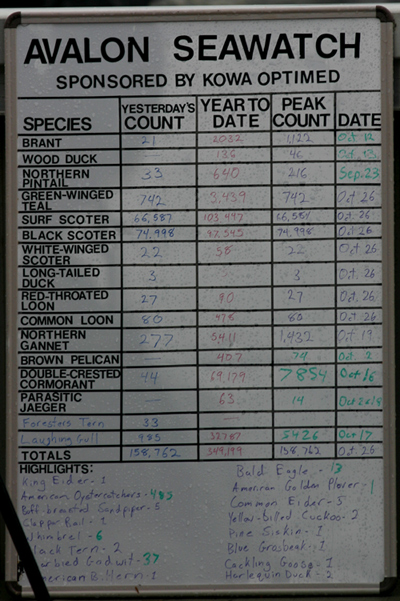 AVALON SEAWATCH
SPONSORED BY KOWA OPTIMED
SPECIES YESTERDAY'S COUNT YEAR TO DATE PEAK COUNT DATE
BRANT 21 2032 1,122 Oct 12
WOOD DUCK — 136 46 Oct. 13
NORTHERN PINTAIL 33 640 216 Sep. 23
GREEN-WINGED TEAL 742 3,439 742 Oct 26
SURF SCOTER 66,587 103,497 66,587 Oct. 26
BLACK SCOTER 74,998 97,545 74,998 Oct 26
WHITE-WINGED SCOTER 22 58 22 Oct 26
LONG-TAILED DUCK 3 3 Oct. 26
RED-THROATED LOON 27 90 27 Oct. 26
COMMON LOON 80 478 80 Oct 26
NORTHERN GANNET 277 5411 1,432 Oct 19
BROWN PELICAN — 407 74 Oct. 2
DOUBLE-CRESTED CORMORANT 44 69,179 7854 Oct 16
PARASITIC JAEGER — 63 14
Foresters Tern 33
Laughing Gull 985 5426 Oct 17
TOTALS 158,762 349,199 158,762 Oct. 26
HIGHLIGHTS:
King Eider - 1
American Oystercatchers - 485
Buff-breasted Sandpiper - 5
Clapper Rail - 1
Whimbrel - 6
Black Tern - 2
Marbled Godwit - 37
American Bittern - 1
Bald Eagle - 13
American Golden Plover - 1
Common Eider - 5
Yellow-billed Cuckoo - 2
Pine Siskin - 1
Blue Grosbeak - 1
Cackling Goose - 1
Harlequin Duck - 2